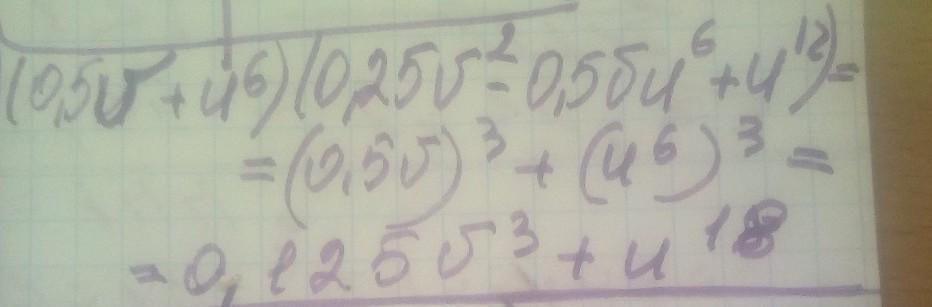 (0,5v + u⁶)(0,25v² - 0,5vu⁶ + u¹²) =
= (0,5v)³ + (u⁶)³ =
= 0,125v³ + u¹⁸